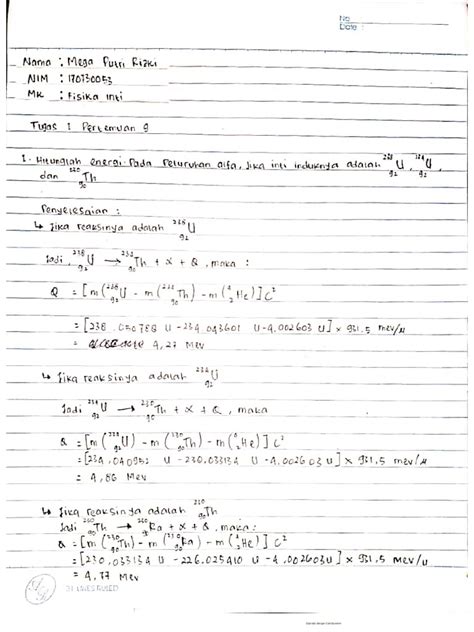 No
Date :
Nama : Mega Putri Rizki
NIM : 170730053
MK : Fisika inti
Tugas 1 Pertemuan 9
1. Hitunglah energi pada peluruhan alfa, jika inti induknya adalah ²³⁸₉₂U, ²³⁴₉₂U,
dan ²³⁰₉₀Th
Penyelesaian :
↳ Jika reaksinya adalah ²³⁸₉₂U
Jadi, ²³⁸₉₂U → ²³⁴₉₀Th + α + Q, maka :
Q = [m(²³⁸₉₂U - m(²³⁴₉₀Th) - m(⁴₂He)] C²
= [238.050788 U - 234.043601 U - 4.002603 U] × 931.5 mev/u
= 4,27 Mev
↳ Jika reaksinya adalah ²³⁴₉₂U
Jadi ²³⁴₉₂U → ²³⁰₉₀Th + α + Q, maka
Q = [m(²³⁴₉₂U) - m(²³⁰₉₀Th) - m(⁴₂He)] C²
= [234,040952 U - 230.033134 U - 4,002603 U] × 931,5 mev/u
= 4,86 Mev
↳ Jika reaksinya adalah ²³⁰₉₀Th
Jadi ²³⁰₉₀Th → Ra + α + Q, maka :
Q = [m(²³⁰₉₀Th) - m(Ra) - m(⁴₂He)] C²
= [230,033134 U - 226.025410 U - 4,002603 U] × 931,5 mev/u
= 4,77 Mev
31 LINES RULED